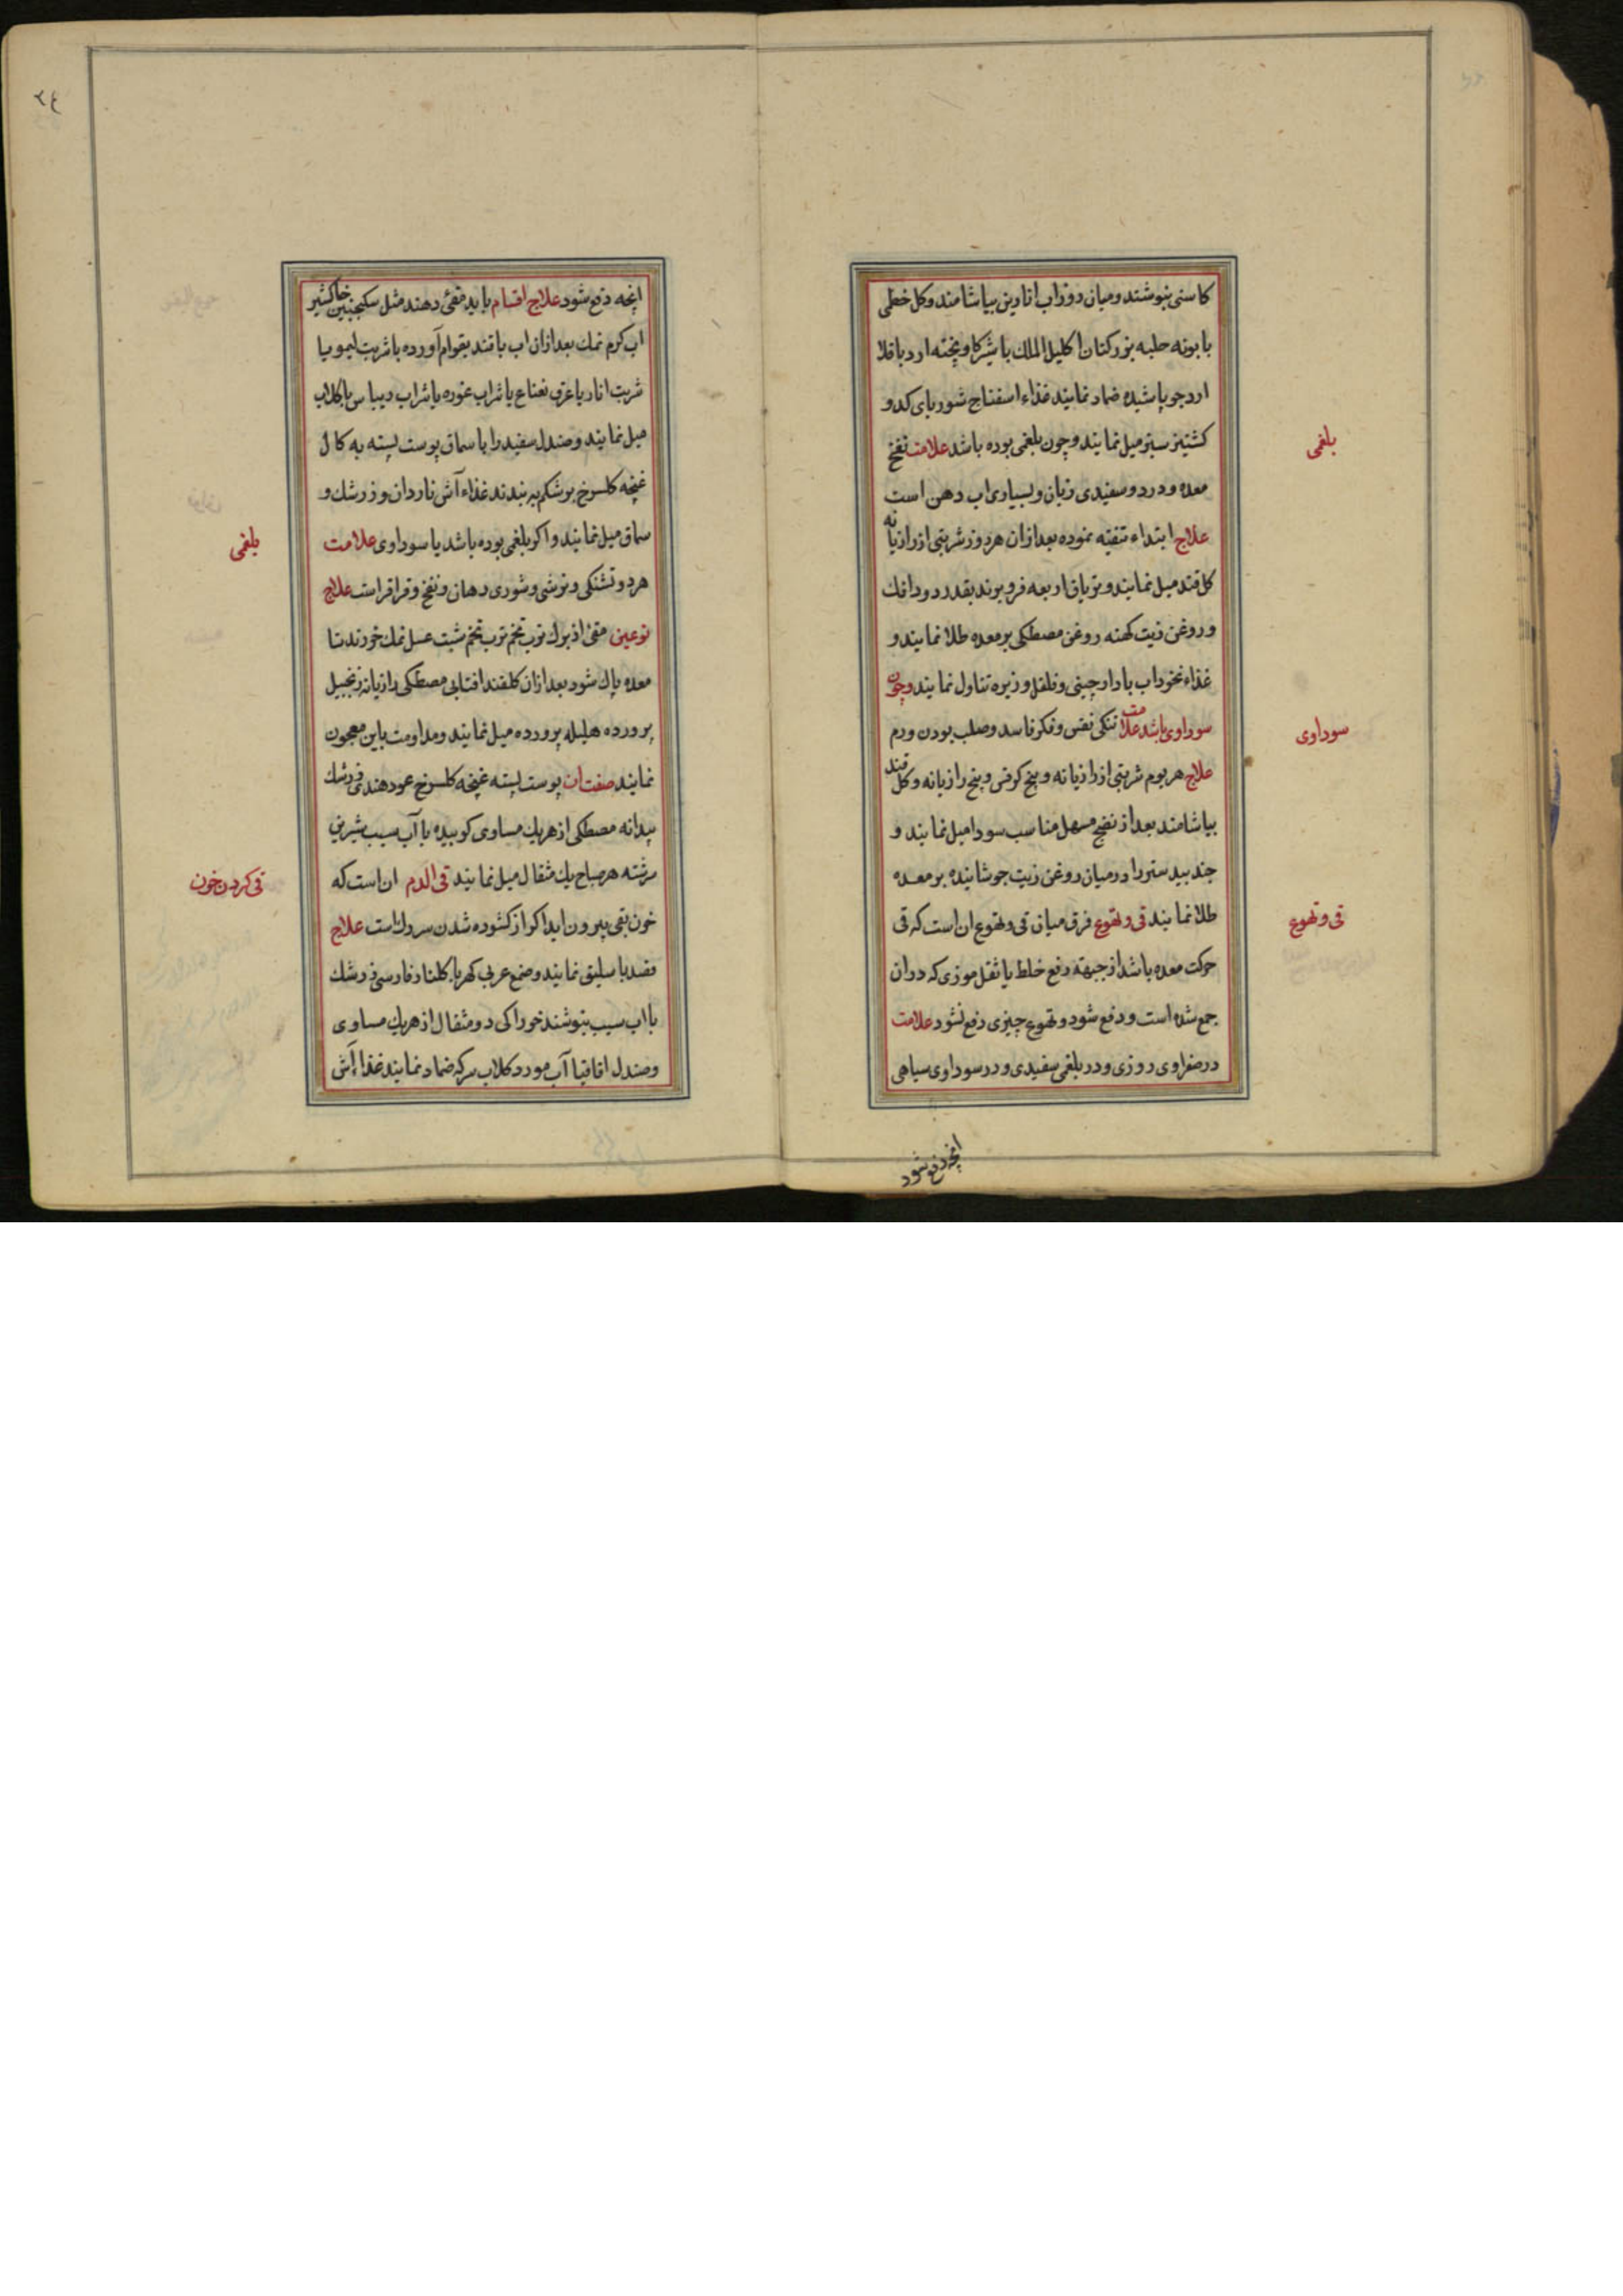 کاسنی بنوشند و میان دو تراب انارین بیاشامند و کل خطمی
بابونه حلبه بزرکتان اکلیل الملک با شیر کاو پخته ارد باقلا
ارد جو پاشیده ضماد نمایند غذاء اسفناج شوربای کدو
کشنیز سبز میل نمایند و چون بلغمی بوده باشد علامت نفخ
بلغمی
معده و درد و سفیدی زبان و بسیاری اب دهن است
علاج ابتداء تنقیه نموده بعد ازان هر روز شربتی از رازیانه
کل قند میل نمایند و تریاق اربعه فرو برند بقدر دو دانك
و روغن زیت کهنه روغن مصطکی بر معده طلا نمایند و
غذاء نخوداب با دارچینی و فلفل و زیره تناول نمایند و چون
سوداوی باشد علامت تنکی نفس و فکر فاسد و صلب بودن ورم
سوداوی
علاج هر یوم شربتی از رازیانه و بیخ کرفس و بیخ رازیانه و کل قند
بیاشامند بعد از نضج مسهل مناسب سودا میل نمایند و
جند بیدستر را در میان روغن زیت جوشانیده بر معده
طلا نمایند قی و تهوع فرق میان قی و تهوع ان است که قی
قی و تهوع
حرکت معده باشد از جبهة دفع خلط یا ثقل موزی که دران
جمع شده است و دفع شود و تهوع چیزی دفع نشود علامت
در صفراوی زردی و در بلغمی سفیدی و در سوداوی سیاهی
انچه دفع شود
٢٤
انچه دفع شود علاج اقسام باید مقئ دهند مثل سکنجبین خاکشیر
اب کرم نمك بعد ازان اب با قند بقوام آورده با شربت لیمو یا
شربت انار یا عرق نعناع یا شراب غوره یا شراب ریباس با کلاب
میل نمایند و صندل سفید را با سماق پوست پسته به کال
غنچه کلسرخ بر شکم به بندند غذاء آش ناردان و زرشك و
سماق میل نمایند و اکر بلغمی بوده باشد یا سوداوی علامت
بلغمی
هر دو تشنکی و ترشی و شوری دهان و نفخ و قراقر است علاج
نوعین مقئ از برك ترب تخم ترب تخم شبت عسل نمك خورند تا
معده پاك شود بعد ازان کلقند افتابی مصطکی رازیانه زنجبیل
پرورده هلیله پرورده میل نمایند و مداومت باین معجون
نمایند صفت ان پوست پسته غنچه کلسرخ عود هندی زرشك
بیدانه مصطکی از هریك مساوی کوبیده با آب سیب شیرین
سرشته هر صباح یك مثقال میل نمایند قی الدم ان است که
قی کردن خون
خون بقی بیرون اید اکر از کشوده شدن سر رك است علاج
فصد باسلیق نمایند و صمغ عربی کهربا کلنار فارسی زرشك
با اب سیب بنوشند خوراکی دو مثقال از هریك مساوی
و صندل اقاقیا آب مورد کلاب سرکه ضماد نمایند غذا آش